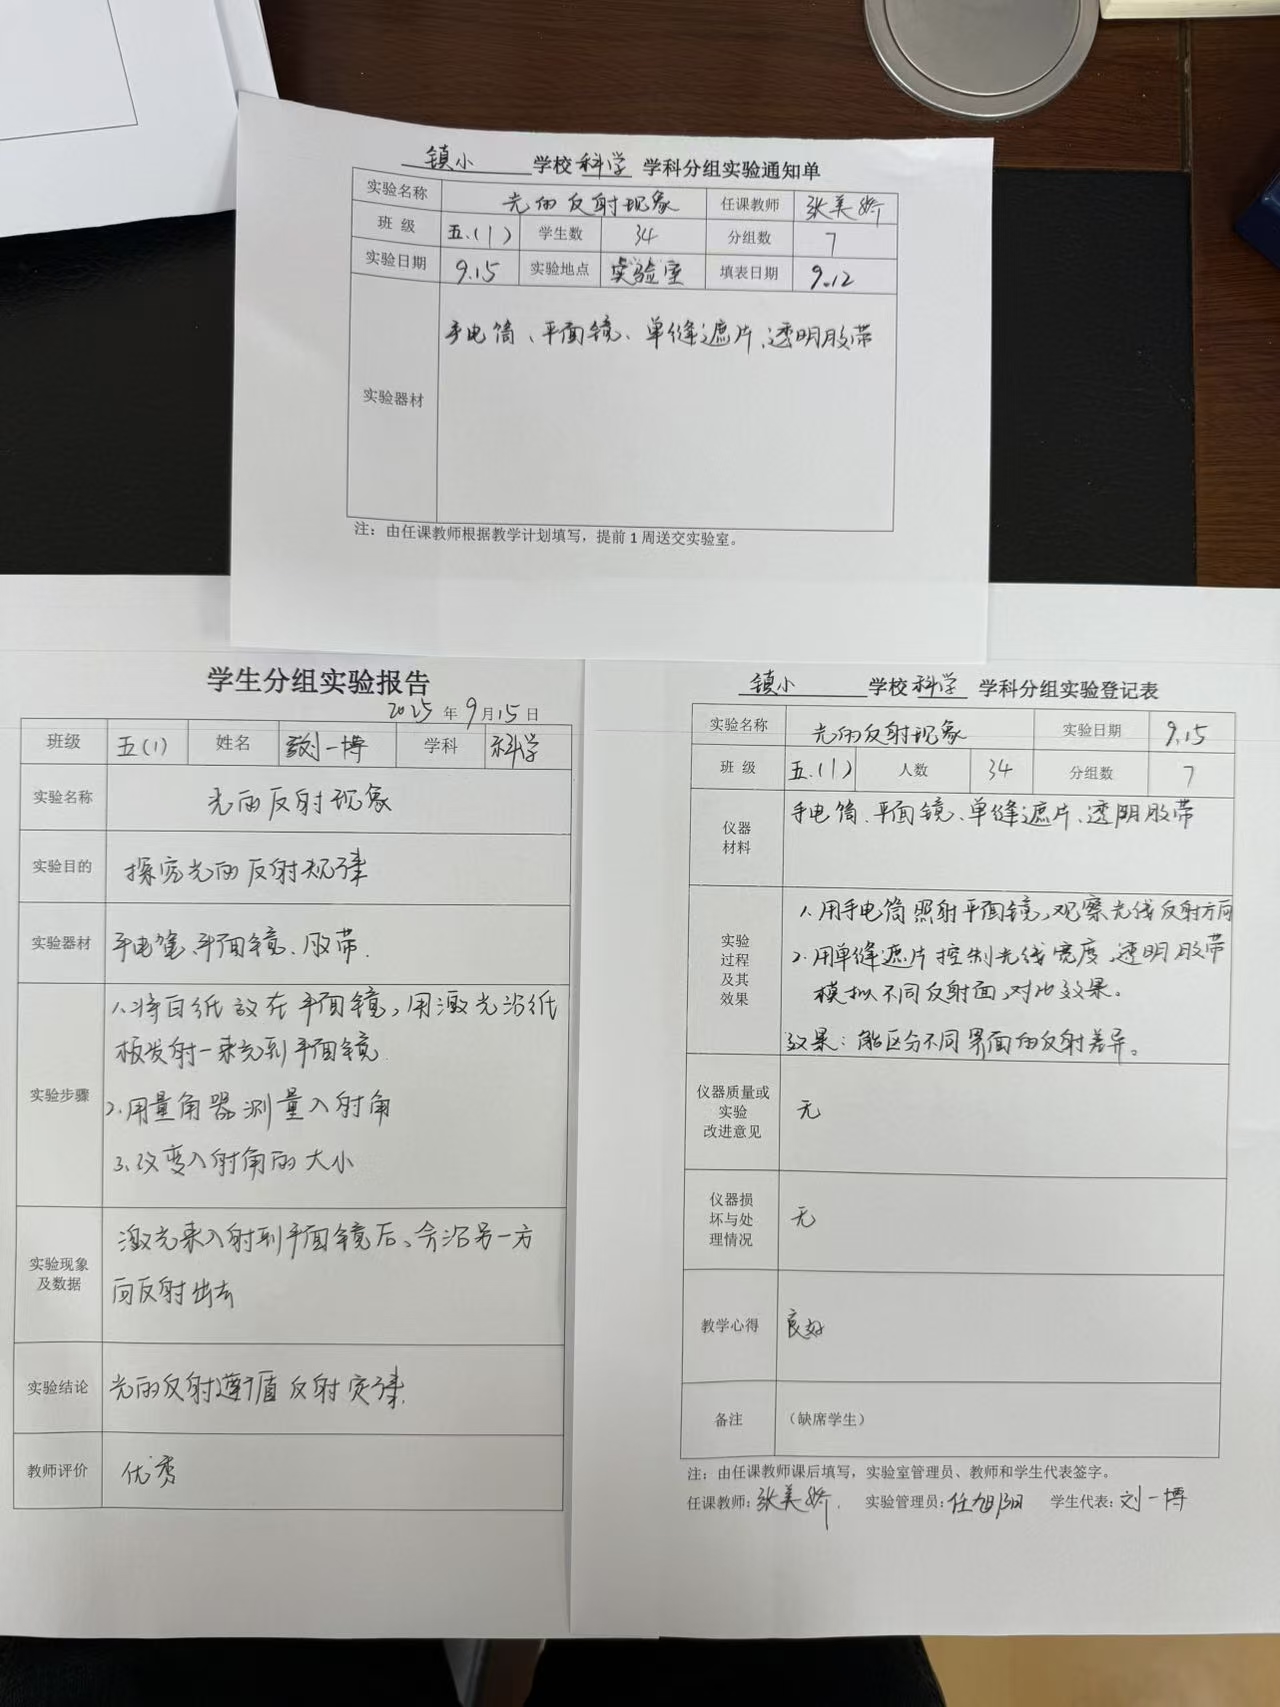 镇小 学校 科学 学科分组实验通知单
实验名称 光的反射现象 任课教师 张美娇
班 级 五.(1) 学生数 34 分组数 7
实验日期 9.15 实验地点 实验室 填表日期 9.12
实验器材 手电筒、平面镜、单缝遮片、透明胶带
注：由任课教师根据教学计划填写，提前1周送交实验室。
学生分组实验报告
2025 年 9 月 15 日
班级 五(1) 姓名 刘一博 学科 科学
实验名称 光的反射现象
实验目的 探究光的反射规律
实验器材 手电筐、平面镜、胶带.
实验步骤
1.将白纸放在平面镜，用激光沿纸
板发射一束光到平面镜.
2.用量角器测量入射角
3.改变入射角的大小
实验现象
及数据
激光束入射到平面镜后、会沿另一方
向反射出去
实验结论 光的反射遵循反射定律.
教师评价 优秀
镇小 学校 科学 学科分组实验登记表
实验名称 光的反射现象 实验日期 9.15
班 级 五.(1) 人数 34 分组数 7
仪器
材料
手电筒、平面镜、单缝遮片、透明胶带
实验
过程
及其
效果
1.用手电筒照射平面镜，观察光线反射方向
2.用单缝遮片控制光线宽度，透明胶带
模拟不同反射面，对比效果。
效果：能区分不同界面的反射差异。
仪器质量或
实验
改进意见
无
仪器损
坏与处
理情况
无
教学心得 良好
备注 （缺席学生）
注：由任课教师课后填写，实验室管理员、教师和学生代表签字。
任课教师：张美娇. 实验管理员：任旭阳 学生代表：刘一博